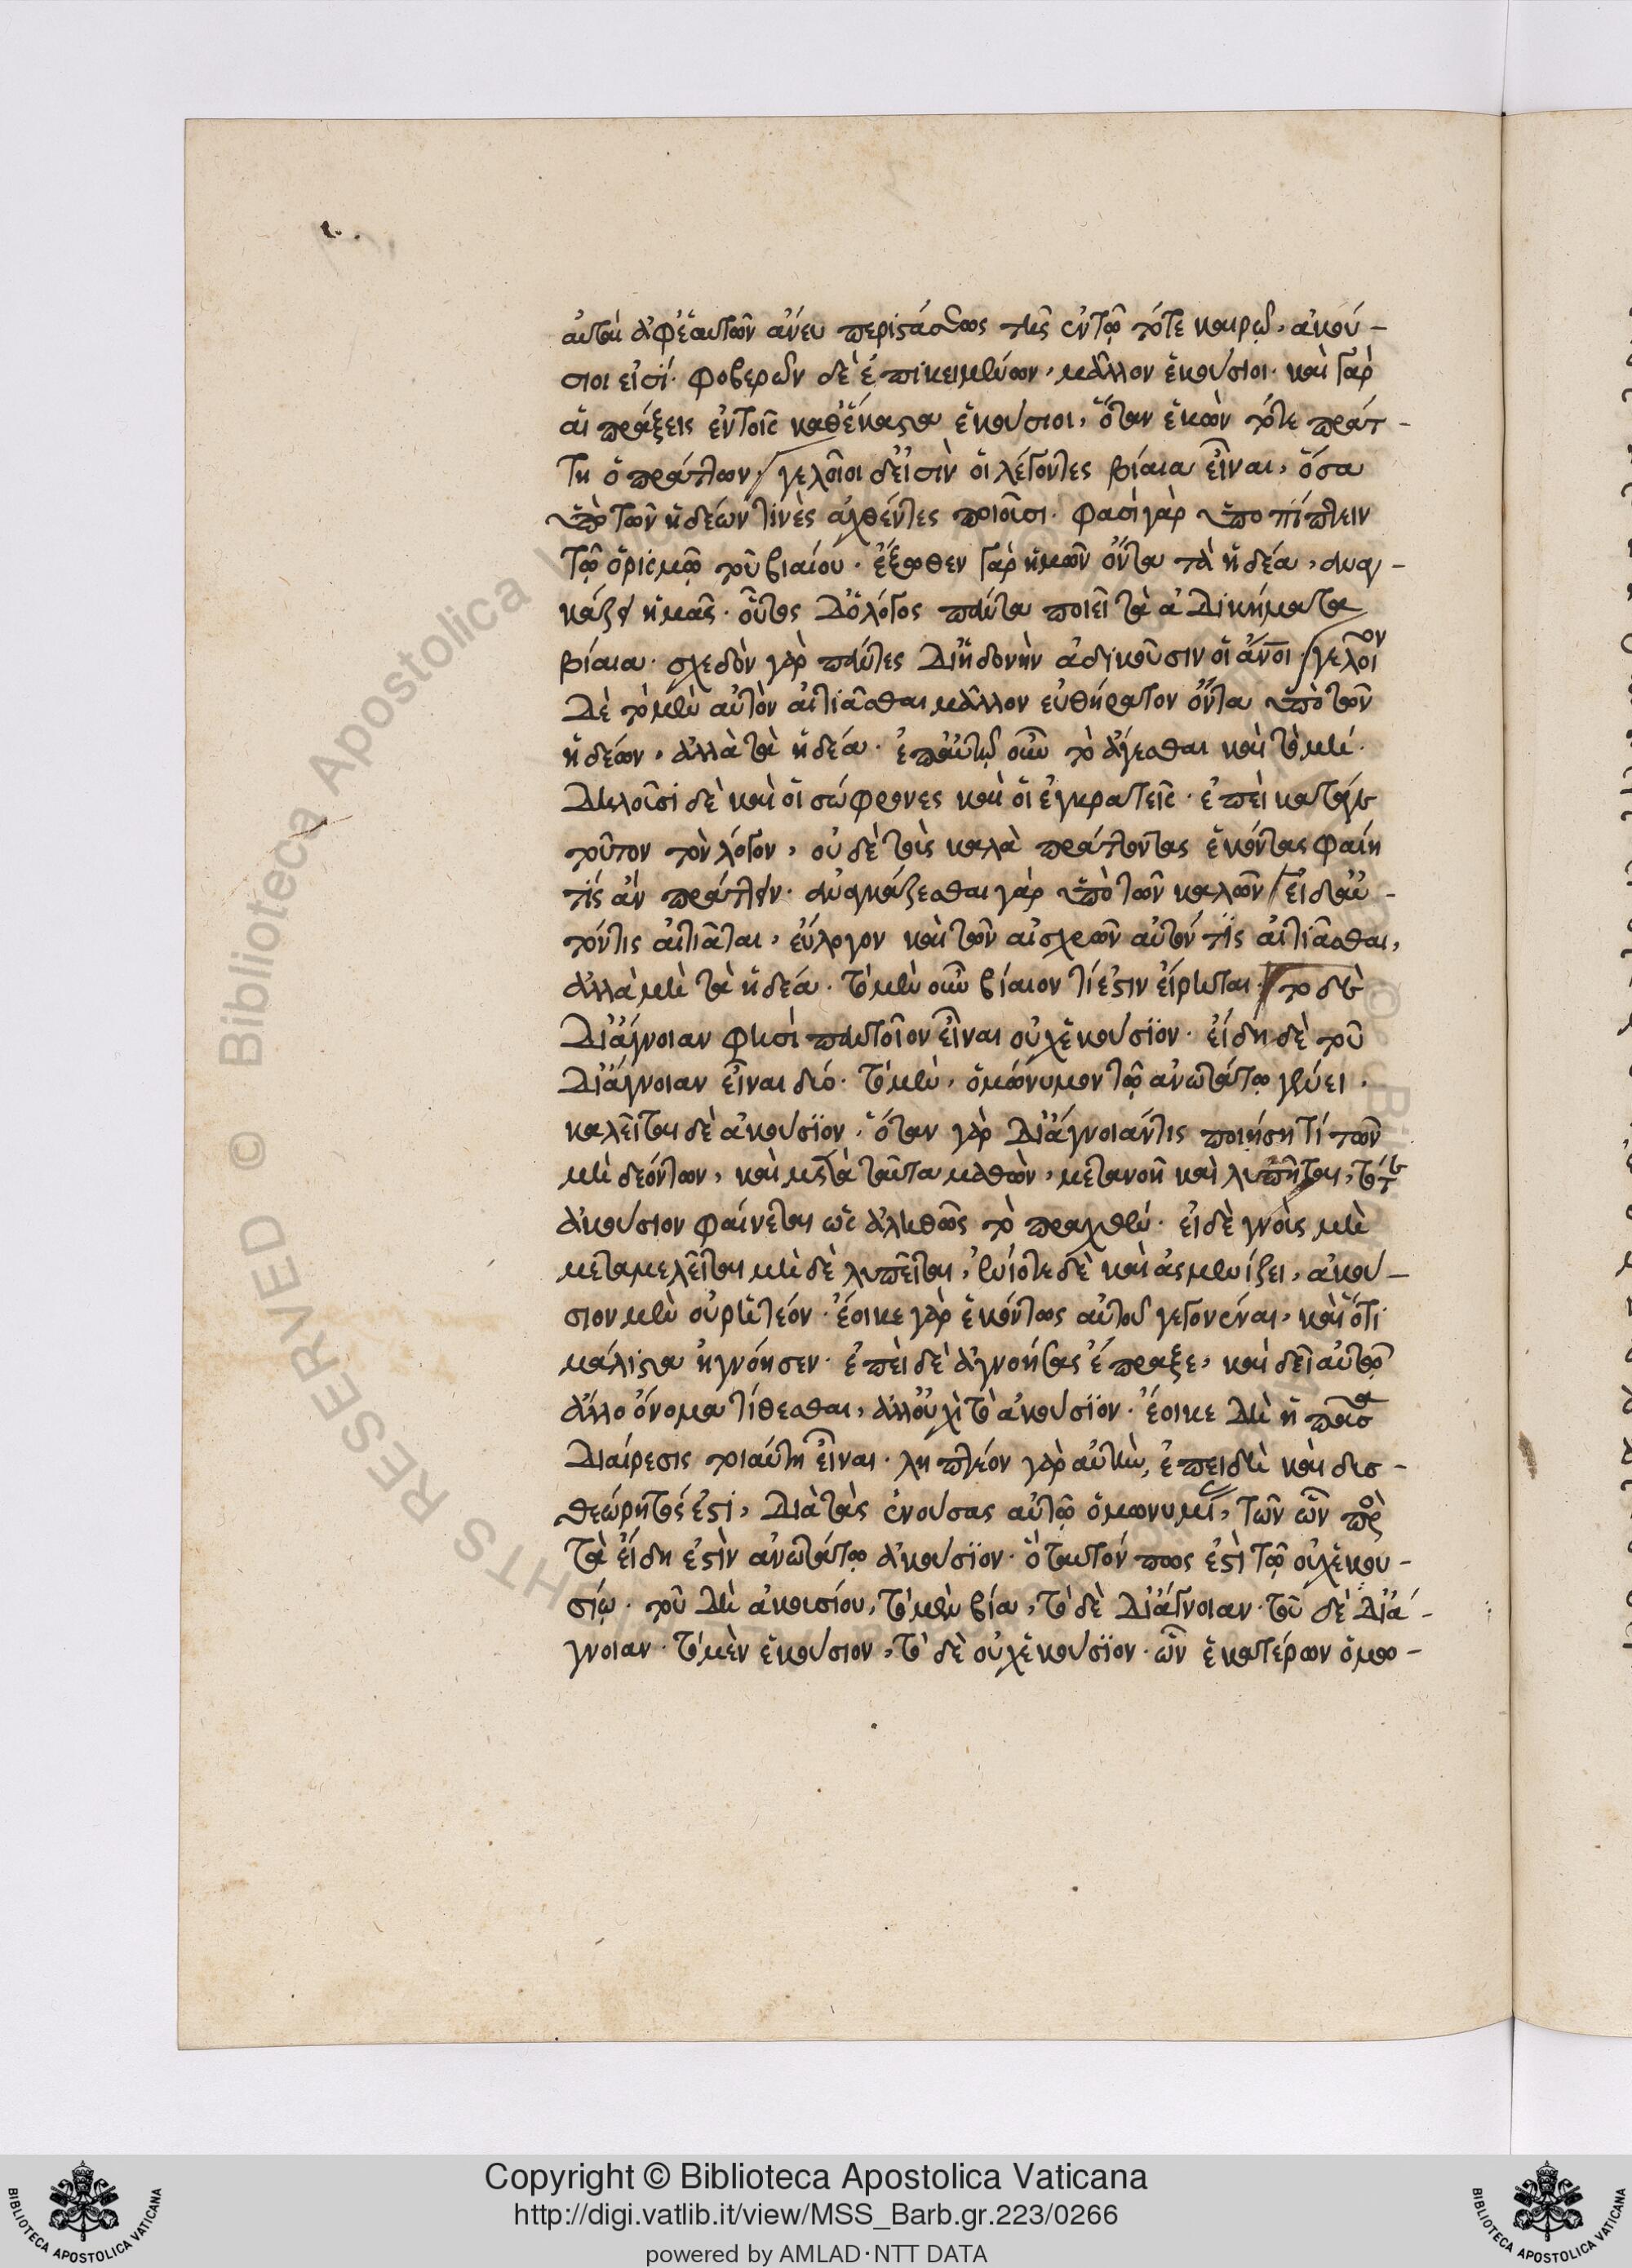 αὗται ἀφ' ἑαυτῶν ἄνευ περιστάσεως τῆς ἐν τῷ τότε καιρῷ, ἀκού-
σιοι εἰσί· φοβερῶν δὲ ἐπικειμένων, μᾶλλον ἑκούσιοι· καὶ γὰρ
αἱ πράξεις ἐν τοῖς καθέκαστα ἑκούσιοι, ὅταν ἑκὼν τότε πράτ-
τῃ ὁ πράττων· γελοῖοι δ' εἰσὶν οἱ λέγοντες βίαια εἶναι, ὅσα
ὑπὸ τῶν ἡδέων τινὲς ἀχθέντες ποιοῦσι· φασὶ γὰρ ὑποπίπτειν
τῷ ὁρισμῷ τοῦ βιαίου· ἔξωθεν γὰρ ἡμῶν ὄντα τὰ ἡδέα, αναγ-
κάζει ἡμᾶς· οὗτος δ' ὁ λόγος πάντα ποιεῖ τὰ ἀδικήματα
βίαια· σχεδὸν γὰρ πάντες δι' ἡδονὴν ἀδικοῦσιν οἱ ἄνοι· γελοῖον
δὲ τὸ μὲν αὐτὸν αἰτιᾶσθαι μᾶλλον εὐθήρατον ὄντα ὑπὸ τῶν
ἡδέων, ἀλλὰ τὰ ἡδέα· ἐπ' αὐτῷ οὖν τὸ ἄγεσθαι καὶ τὸ μή·
δηλοῦσι δὲ καὶ οἱ σώφρονες καὶ οἱ ἐγκρατεῖς· ἐπεὶ κατά γε
τοῦτον τὸν λόγον, οὐδὲ τοὺς καλὰ πράττοντας ἑκόντας φαίη
τίς ἂν πράττειν· ἀναγκάζεσθαι γὰρ ὑπὸ τῶν καλῶν εἰ δ' αὑ-
τόν τις αἰτιᾶται, εὔλογον καὶ τῶν αἰσχρῶν αὑτόν τις αἰτιᾶσθαι,
ἀλλὰ μὴ τὰ ἡδέα· τὸ μὲν οὖν βίαιον τί ἐστιν εἴρηται· το δὲ
δι' ἄγνοιαν φησὶ παντοῖον εἶναι οὐχ ἑκούσϊον· εἴδη δὲ τοῦ
δι' ἄγνοιαν εἶναι δύο· τὸ μὲν, ὁμώνυμον τῷ ἀνωτάτω γένει·
καλεῖται δὲ ἀκούσϊον· ὅταν γὰρ δι' ἄγνοιάν τις ποιήσῃ τί τῶν
μὴ δεόντων, καὶ μετὰ ταῦτα μαθὼν, μετανοῇ καὶ λυπῆται, τότε
ἀκούσιον φαίνεται ὡς ἀληθῶς τὸ πραχθέν· εἰ δὲ γνοὺς μὴ
μεταμελεῖται μὴ δὲ λυπεῖται, ἐνίοτε δὲ καὶ ἀσμενίζει, ἀκού-
σιον μὲν οὐ ρητέον· ἔοικε γὰρ ἑκόντως αὐτοῦ γεγονέναι, καὶ ὅτι
μάλιστα ἠγνόησεν· ἐπεὶ δὲ ἀγνοήσας ἔπραξε, καὶ δεῖ αὐτῷ
ἄλλο ὄνομα τίθεσθαι, ἀλλ' οὐχὶ τὸ ἀκούσϊον· ἔοικε δὴ ἡ πᾶσα
διαίρεσις τοιαύτη εἶναι· ληπτέον γὰρ αὐτὴν, ἐπειδὴ καὶ δυσ-
θεώρητός ἐστι, διὰ τὰς ἐνούσας αὐτῷ ὁμωνυμί, τῶν ὧν πρὸ
τὰ εἴδη ἐστὶν ἀνωτάτω ἀκούσϊον· ὃ ταυτόν πως ἐστὶ τῷ οὐχ ἑκου-
σίῳ· τοῦ δὴ ἀκουσίου, τὸ μὲν βία, τὸ δὲ δι' ἄγνοιαν· τοῦ δὲ δι' ἄ-
γνοιαν· τὸ μὲν ἑκούσιον, τὸ δὲ οὐχ ἑκούσϊον· ὧν ἑκατέρων ὁμω-